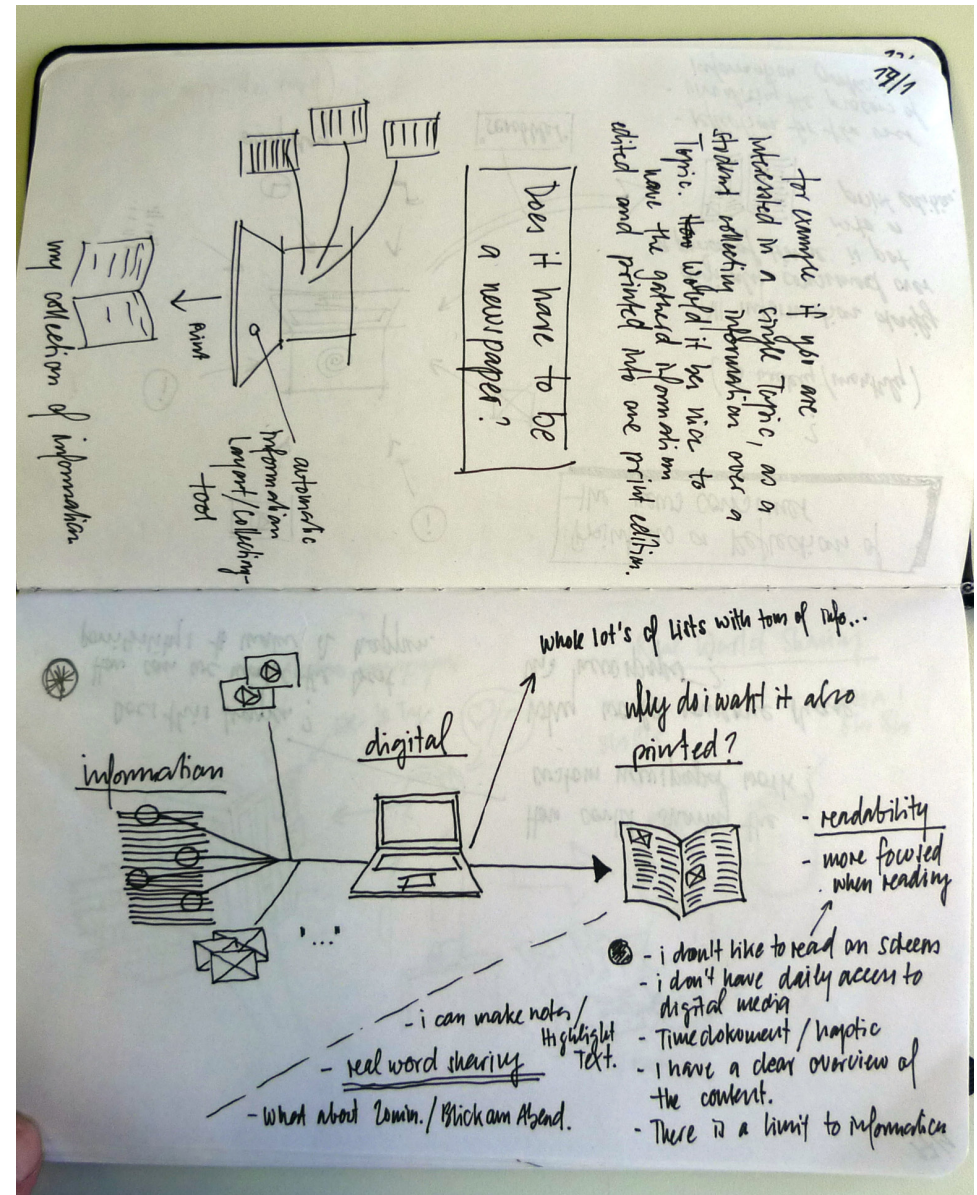 19/1
for example if you are
interessted in a single Topic, as a
student collecting information over a
Topic. How Would it bee nice to
have the gatherd information
edited and printed into one print edition.
Does it have to be
a newspaper?
automatic
information
Layout/collecting-
tool
print
my collection of information
whole lot's of Lists with tons of info...
Why do i want it also
printed?
digital
information
"..."
- readability
- more focused
when reading
- i don't like to read on screens
- i don't have daily access to
digital media
- Timedokument / haptic
- I have a clear overview of
the content.
- There is a limit to information
- i can make notes /
Highlight
Text.
- real word sharing
- What about 20min. / Blick am Abend.